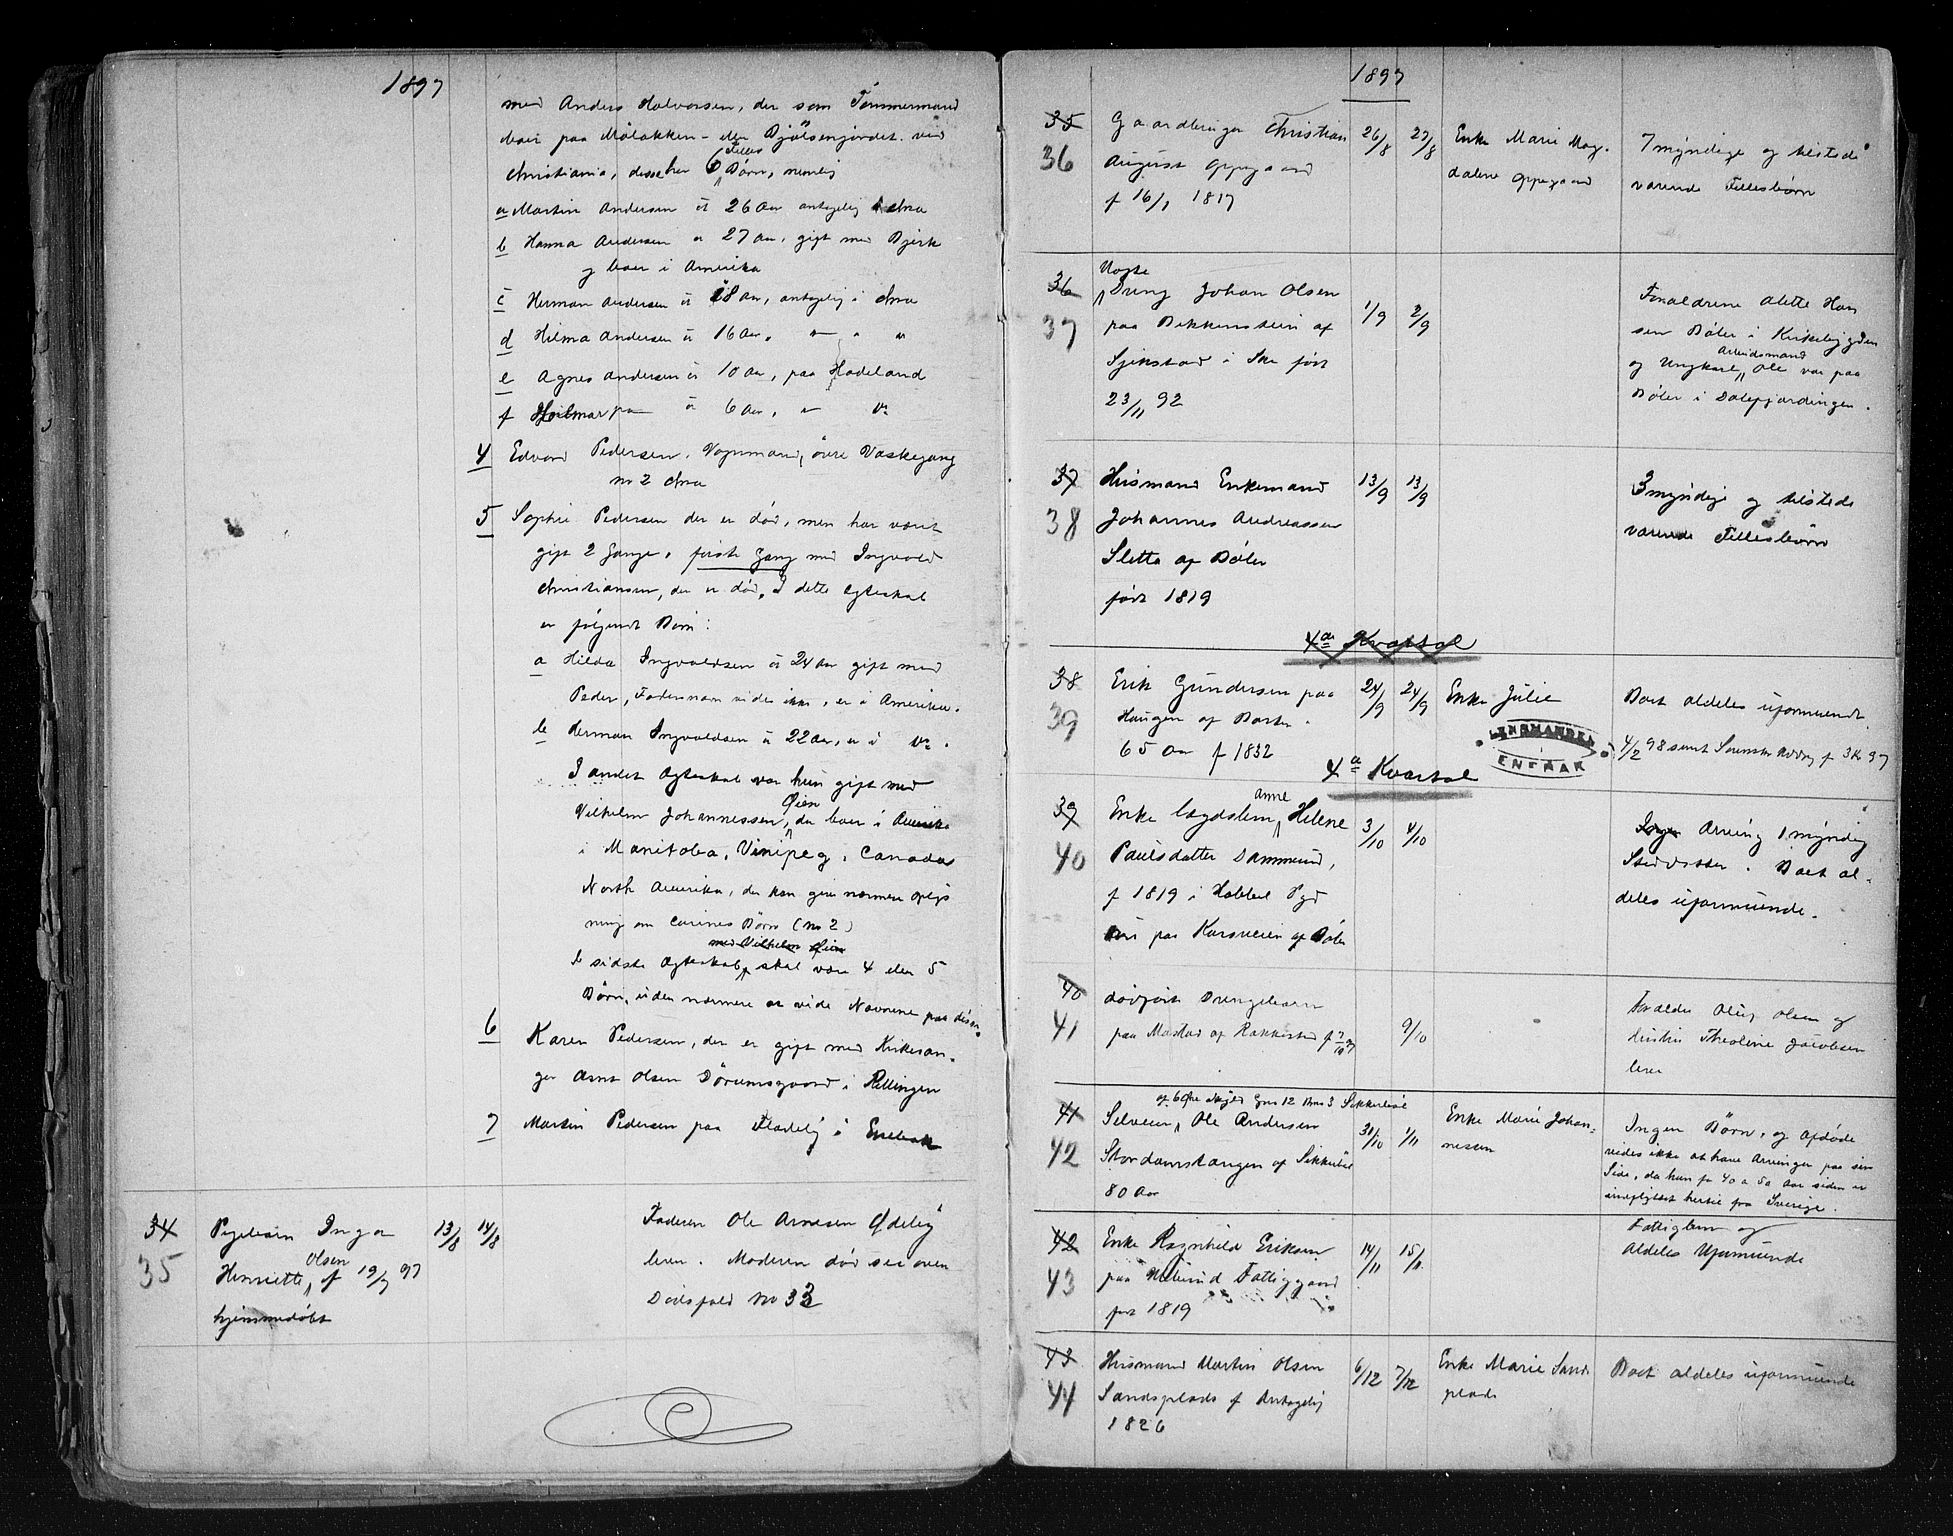 1897
med Anders Halvorsen, der som Tømmermand
boer paa Målakken - eller Bjølsenjordet ved
Fælles
Christiania, disse har 6 Børn, nemlig
a Martin Andersen er 26 Aar antagelig i Chra
b Hanna Andersen er 27 Aar, gift med Bjerk
og boer i Amerika
c Herman Andersen er 18 Aar, antagelig i Chra
d Hilma Andersen er 16 Aar, — " "
e Agnes Andersen er 10 Aar, paa Hadeland
f Hjalmar er 6 Aar,
4 Edvard Pedersen, Vognmand, øvre Vaskegang
no 2 Chra
5 Sophie Pedersen der er død, men har været
gift 2 Gange, første Gang med Ingvald
Christiansen, der er død, I dette Egteskab
er følgende Børn:
a Hilda Ingvaldsen er 24 Aar gift med
Peder, Fadernavn vides ikke, er i Amerika.
b Herman Ingvaldsen er 22 Aar, er i
I andet Egteskab var hun gift med
Øien
Vilhelm Johannessen, der boer i Amerika
i Manitoba, Vinipeg, Canada
North Amerika, der kan give nærmere oplys
ning om Carines Børn (no 2)
med Vilhelm Øien
I sidste Egteskab skal være 4 eller 5
Børn, uden nærmere at vide Navnene paa disse.
6 Karen Pedersen, der er gift med Kirkesan-
ger Arnt Olsen Dørumsgaard i Rællingen
7 Martin Pedersen paa Fladeby i Enebak
34 Pigebarn Inga 13/8 14/8 Faderen Ole Arnesen Ødeby
Olsen
35 Henriette, f 19/7 97 lever. Moderen død see oven
hjemmedøbt Dødsfald no 33
1897
35 Gaardbruger Christian 26/8 27/8 Enke Marie Mag- 7 myndige og tilstede
36 August Oppegaard dalene Oppegaard værende Fællesbørn
f 16/1 1817
36 Drengs Johan Olsen 1/9 2/9 Forældrene Olette Han
37 paa Bekkensten af sen Bøler i Kirkebygden
Arbeidsmand
Sjikstad i Ski født og Ungkarl Ole var paa
23/11 92 Bøler i Dalefjerdingen.
37 Husmand Enkemand 13/9 13/9 3 myndige og tilstede
38 Johannes Andreassen værende Fællesbørn
Sletta af Bøler
født 1819
4de Kvartal
38 Erik Gundersen paa 24/9 24/9 Enke Julie Boet aldeles uformuende
39 Haugen af Børter.
65 Aar f 1832 LENSMANDEN I ENEBAK 4/2 98 sendt 3 Kv 97
4de Kvartal
Anne
39 Enke lægdslem Helene 3/10 4/10 Ingen Arving 1 myndig
40 Paulsdatter Dammund, Steddatter. Boet al-
f 1819 i Hobbøl Pgd deles uformuende.
paa Korsveien af Bøler
40 dødfødt Drengebarn Forældre Oluf Olsen og
41 paa Mostad af Rakkestad f 7/10 97 9/10 Hustru Theoline Jacobsen
lever
af 6 Øre Skyld Gno 12 Bno 3 Sikkerbøl
41 Selveier Ole Andersen 31/10 1/11 Enke Marie Johan- Ingen Børn, og Afdøde
42 Stordamstangen af Sikkerbøl nesen vides ikke at have Arvinger paa sin
80 Aar Side, da han for 40 a 50 Aar siden er
indflyttet hertil fra Sverige.
42 Enke Ragnhild Eriksen 14/11 15/11 Fattiglem og
43 paa Fattiggaard Aldeles Uformuende
født 1819
43 Husmand Martin Olsen 6/12 7/12 Enke Marie Sands Boet aldeles uformuende
44 Sandsplads f Antagelig plads
1826